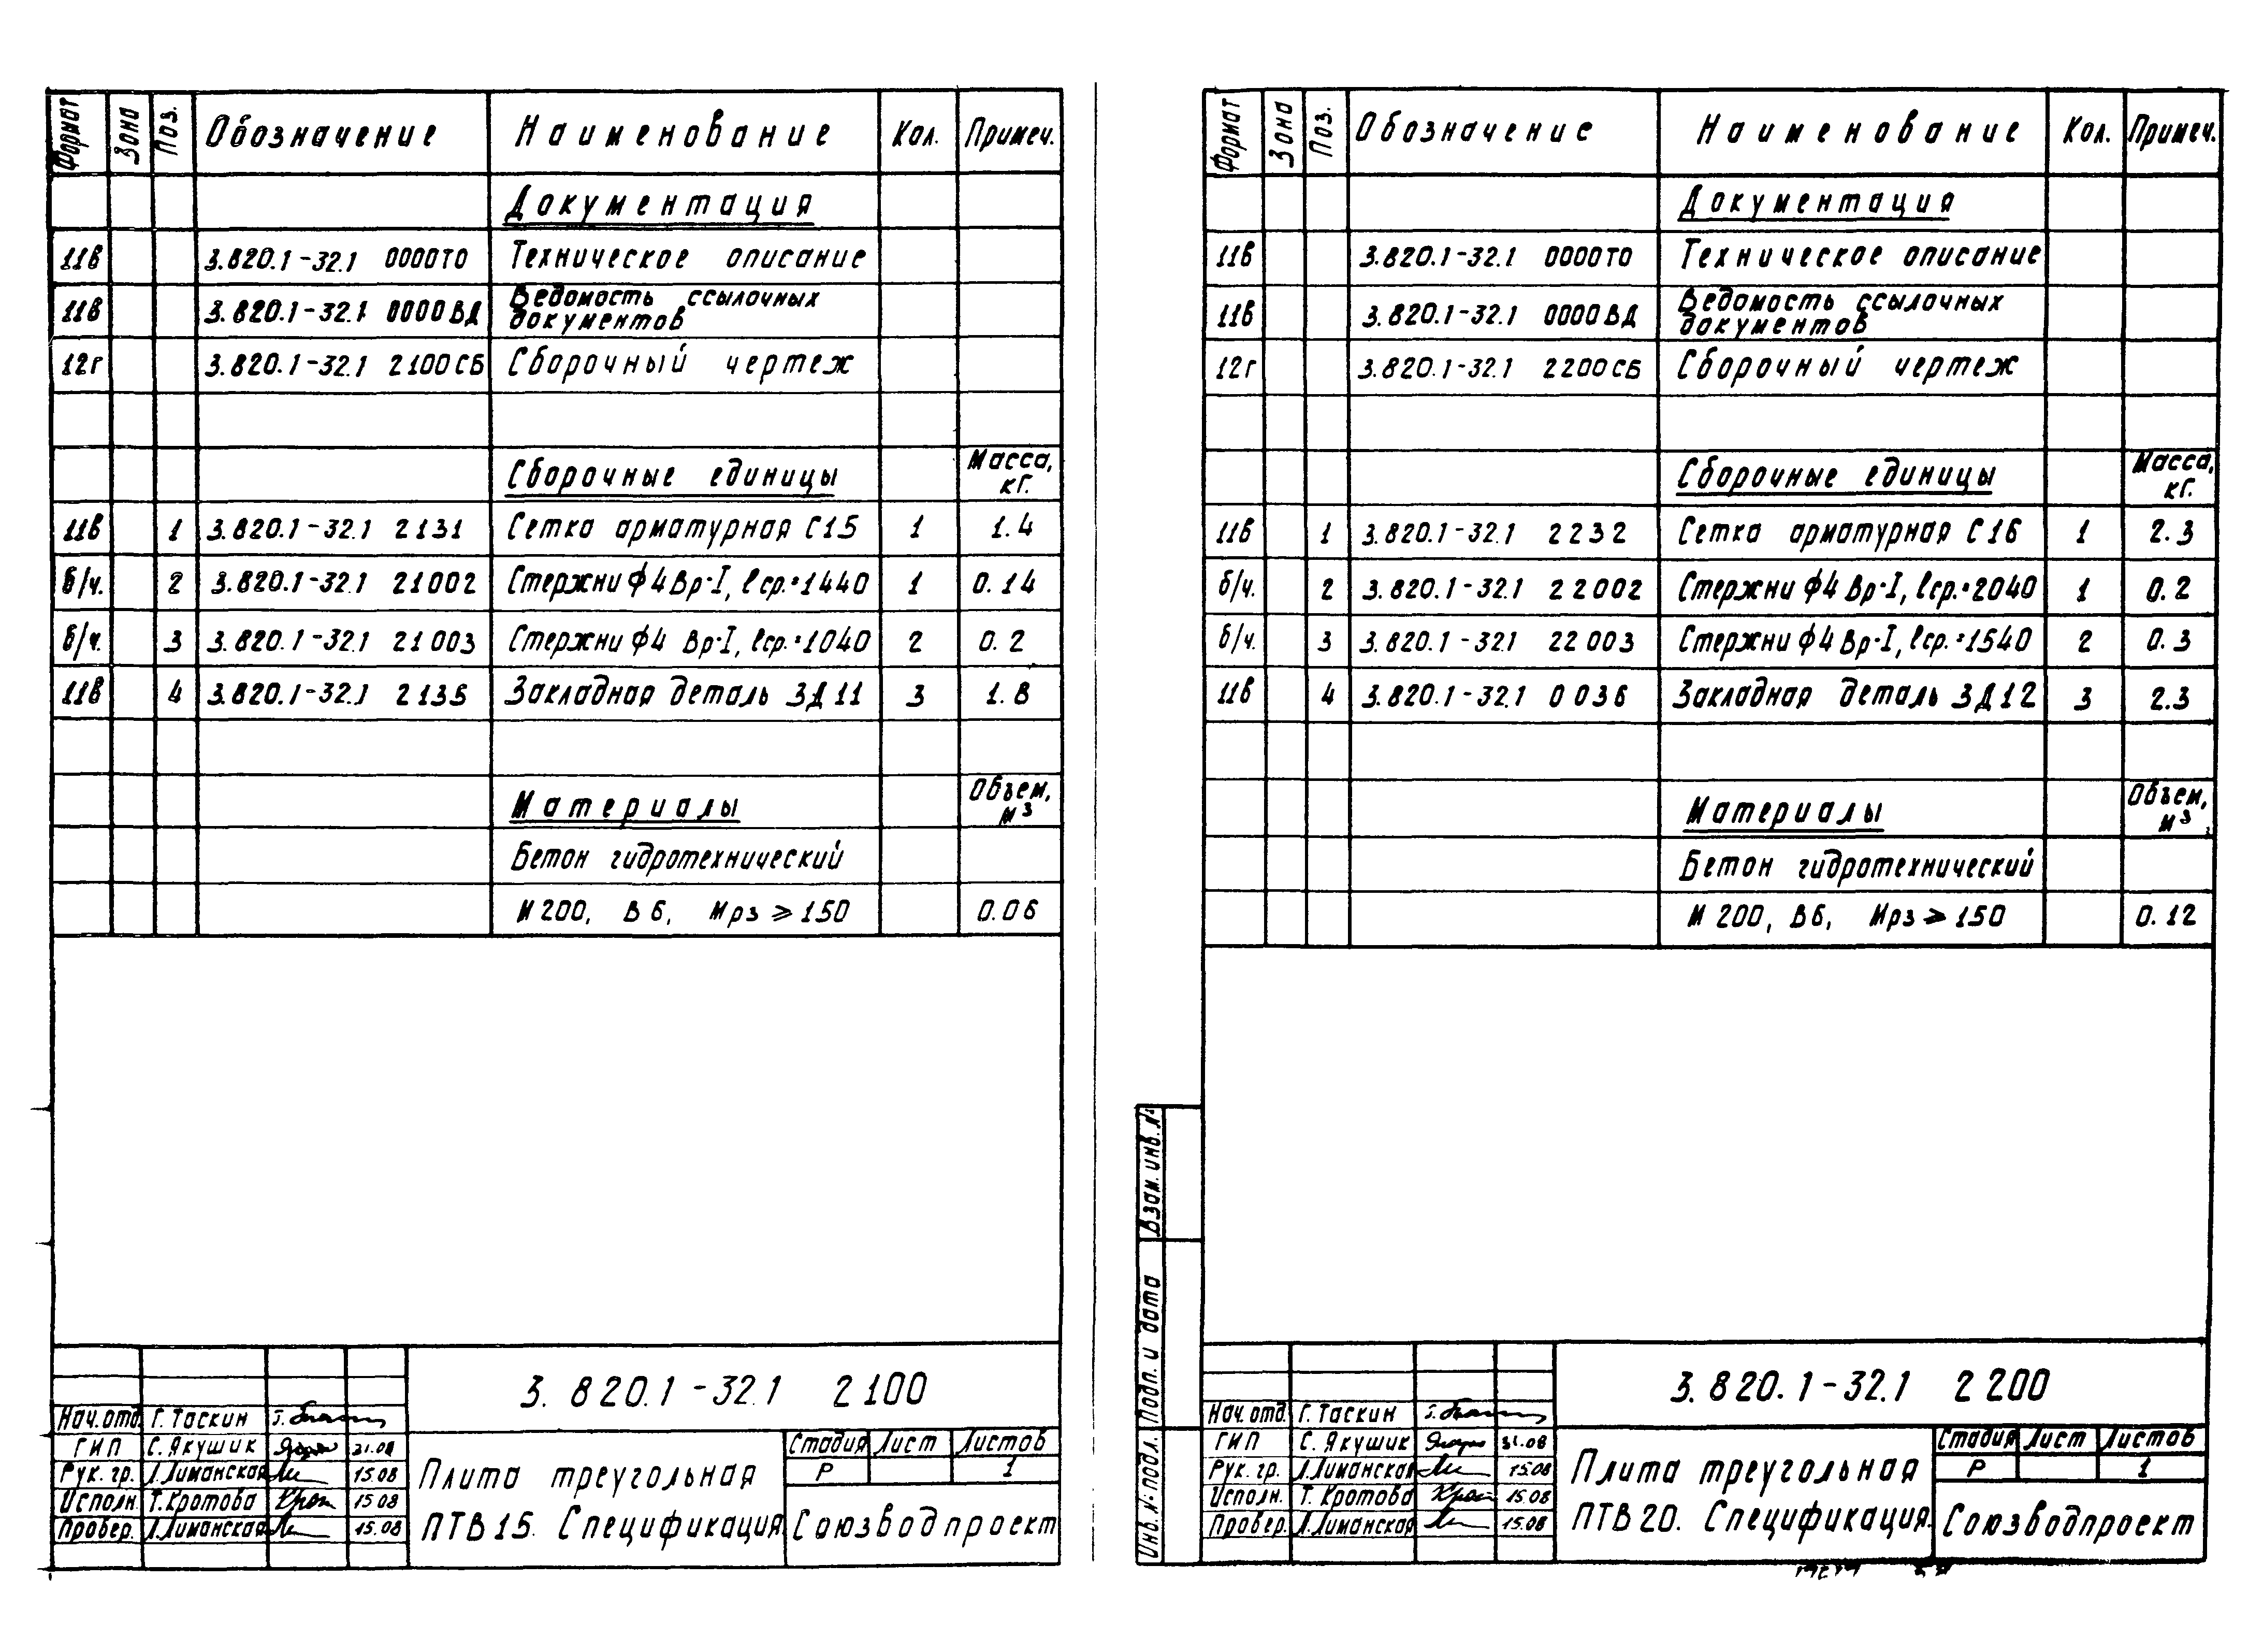 Формат Зона Поз. Обозначение Наименование Кол. Примеч.
Документация
11в 3.820.1-32.1 0000ТО Техническое описание
11в 3.820.1-32.1 0000ВД Ведомость ссылочных
документов
12г 3.820.1-32.1 2100СБ Сборочный чертеж
Сборочные единицы Масса,
кг.
11в 1 3.820.1-32.1 2131 Сетка арматурная С15 1 1.4
б/ч. 2 3.820.1-32.1 21002 Стержни ф4 Вр-I, lср.=1440 1 0.14
б/ч. 3 3.820.1-32.1 21003 Стержни ф4 Вр-I, lср.=1040 2 0.2
11в 4 3.820.1-32.1 2135 Закладная деталь ЗД11 3 1.8
Материалы Объем,
м3
Бетон гидротехнический
М200, В6, Мрз ⩾ 150 0.06
3.820.1-32.1 2100
Нач.отд. Г. Таскин
ГИП С. Якушик 31.08
Рук. гр. Л.Лиманская 15.08
Исполн. Т.Кротова 15.08
Провер. Л.Лиманская 15.08
Плита треугольная
ПТВ15. Спецификация
Стадия Лист Листов
Р 1
Союзводпроект
Формат Зона Поз. Обозначение Наименование Кол. Примеч.
Документация
11в 3.820.1-32.1 0000ТО Техническое описание
11в 3.820.1-32.1 0000ВД Ведомость ссылочных
документов
12г 3.820.1-32.1 2200СБ Сборочный чертеж
Сборочные единицы Масса,
кг.
11в 1 3.820.1-32.1 2232 Сетка арматурная С16 1 2.3
б/ч. 2 3.820.1-32.1 22002 Стержни ф4 Вр-I, lср.=2040 1 0.2
б/ч. 3 3.820.1-32.1 22003 Стержни ф4 Вр-I, lср.=1540 2 0.3
11в 4 3.820.1-32.1 0036 Закладная деталь ЗД12 3 2.3
Материалы Объем,
м3
Бетон гидротехнический
М200, В6, Мрз ⩾ 150 0.12
Взам. инв. №
Подп. и дата
Инв. № подл.
3.820.1-32.1 2200
Нач. отд. Г. Таскин
ГИП С. Якушик 31.08
Рук. гр. Л.Лиманская 15.08
Исполн. Т. Кротова 15.08
Провер. Л.Лиманская 15.08
Плита треугольная
ПТВ20. Спецификация.
Стадия Лист Листов
Р 1
Союзводпроект